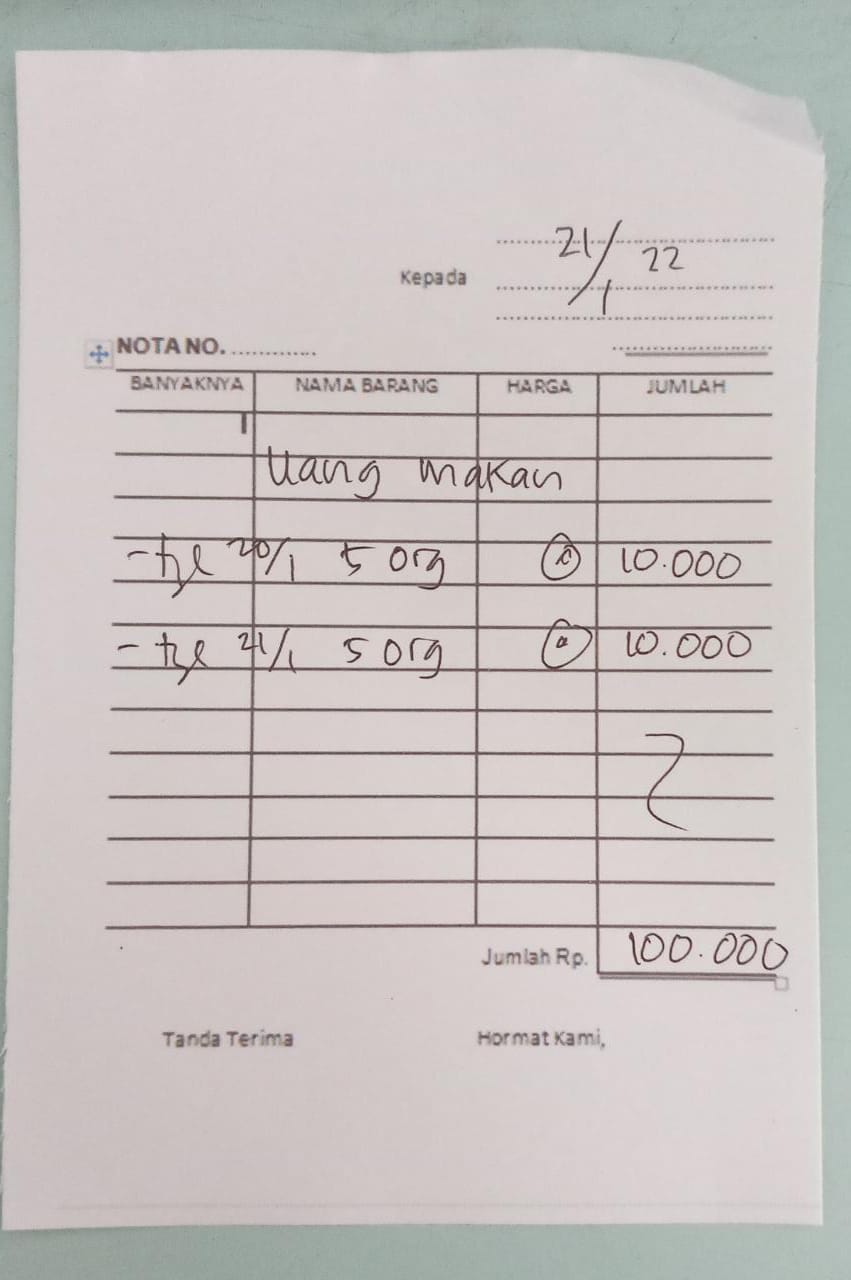 21/1 22
Kepada
NOTA NO. .............
BANYAKNYA NAMA BARANG HARGA JUMLAH
Uang makan
- tgl 20/1 5 org @ 10.000
- tgl 21/1 5 org @ 10.000
Jumlah Rp. 100.000
Tanda Terima Hormat Kami,